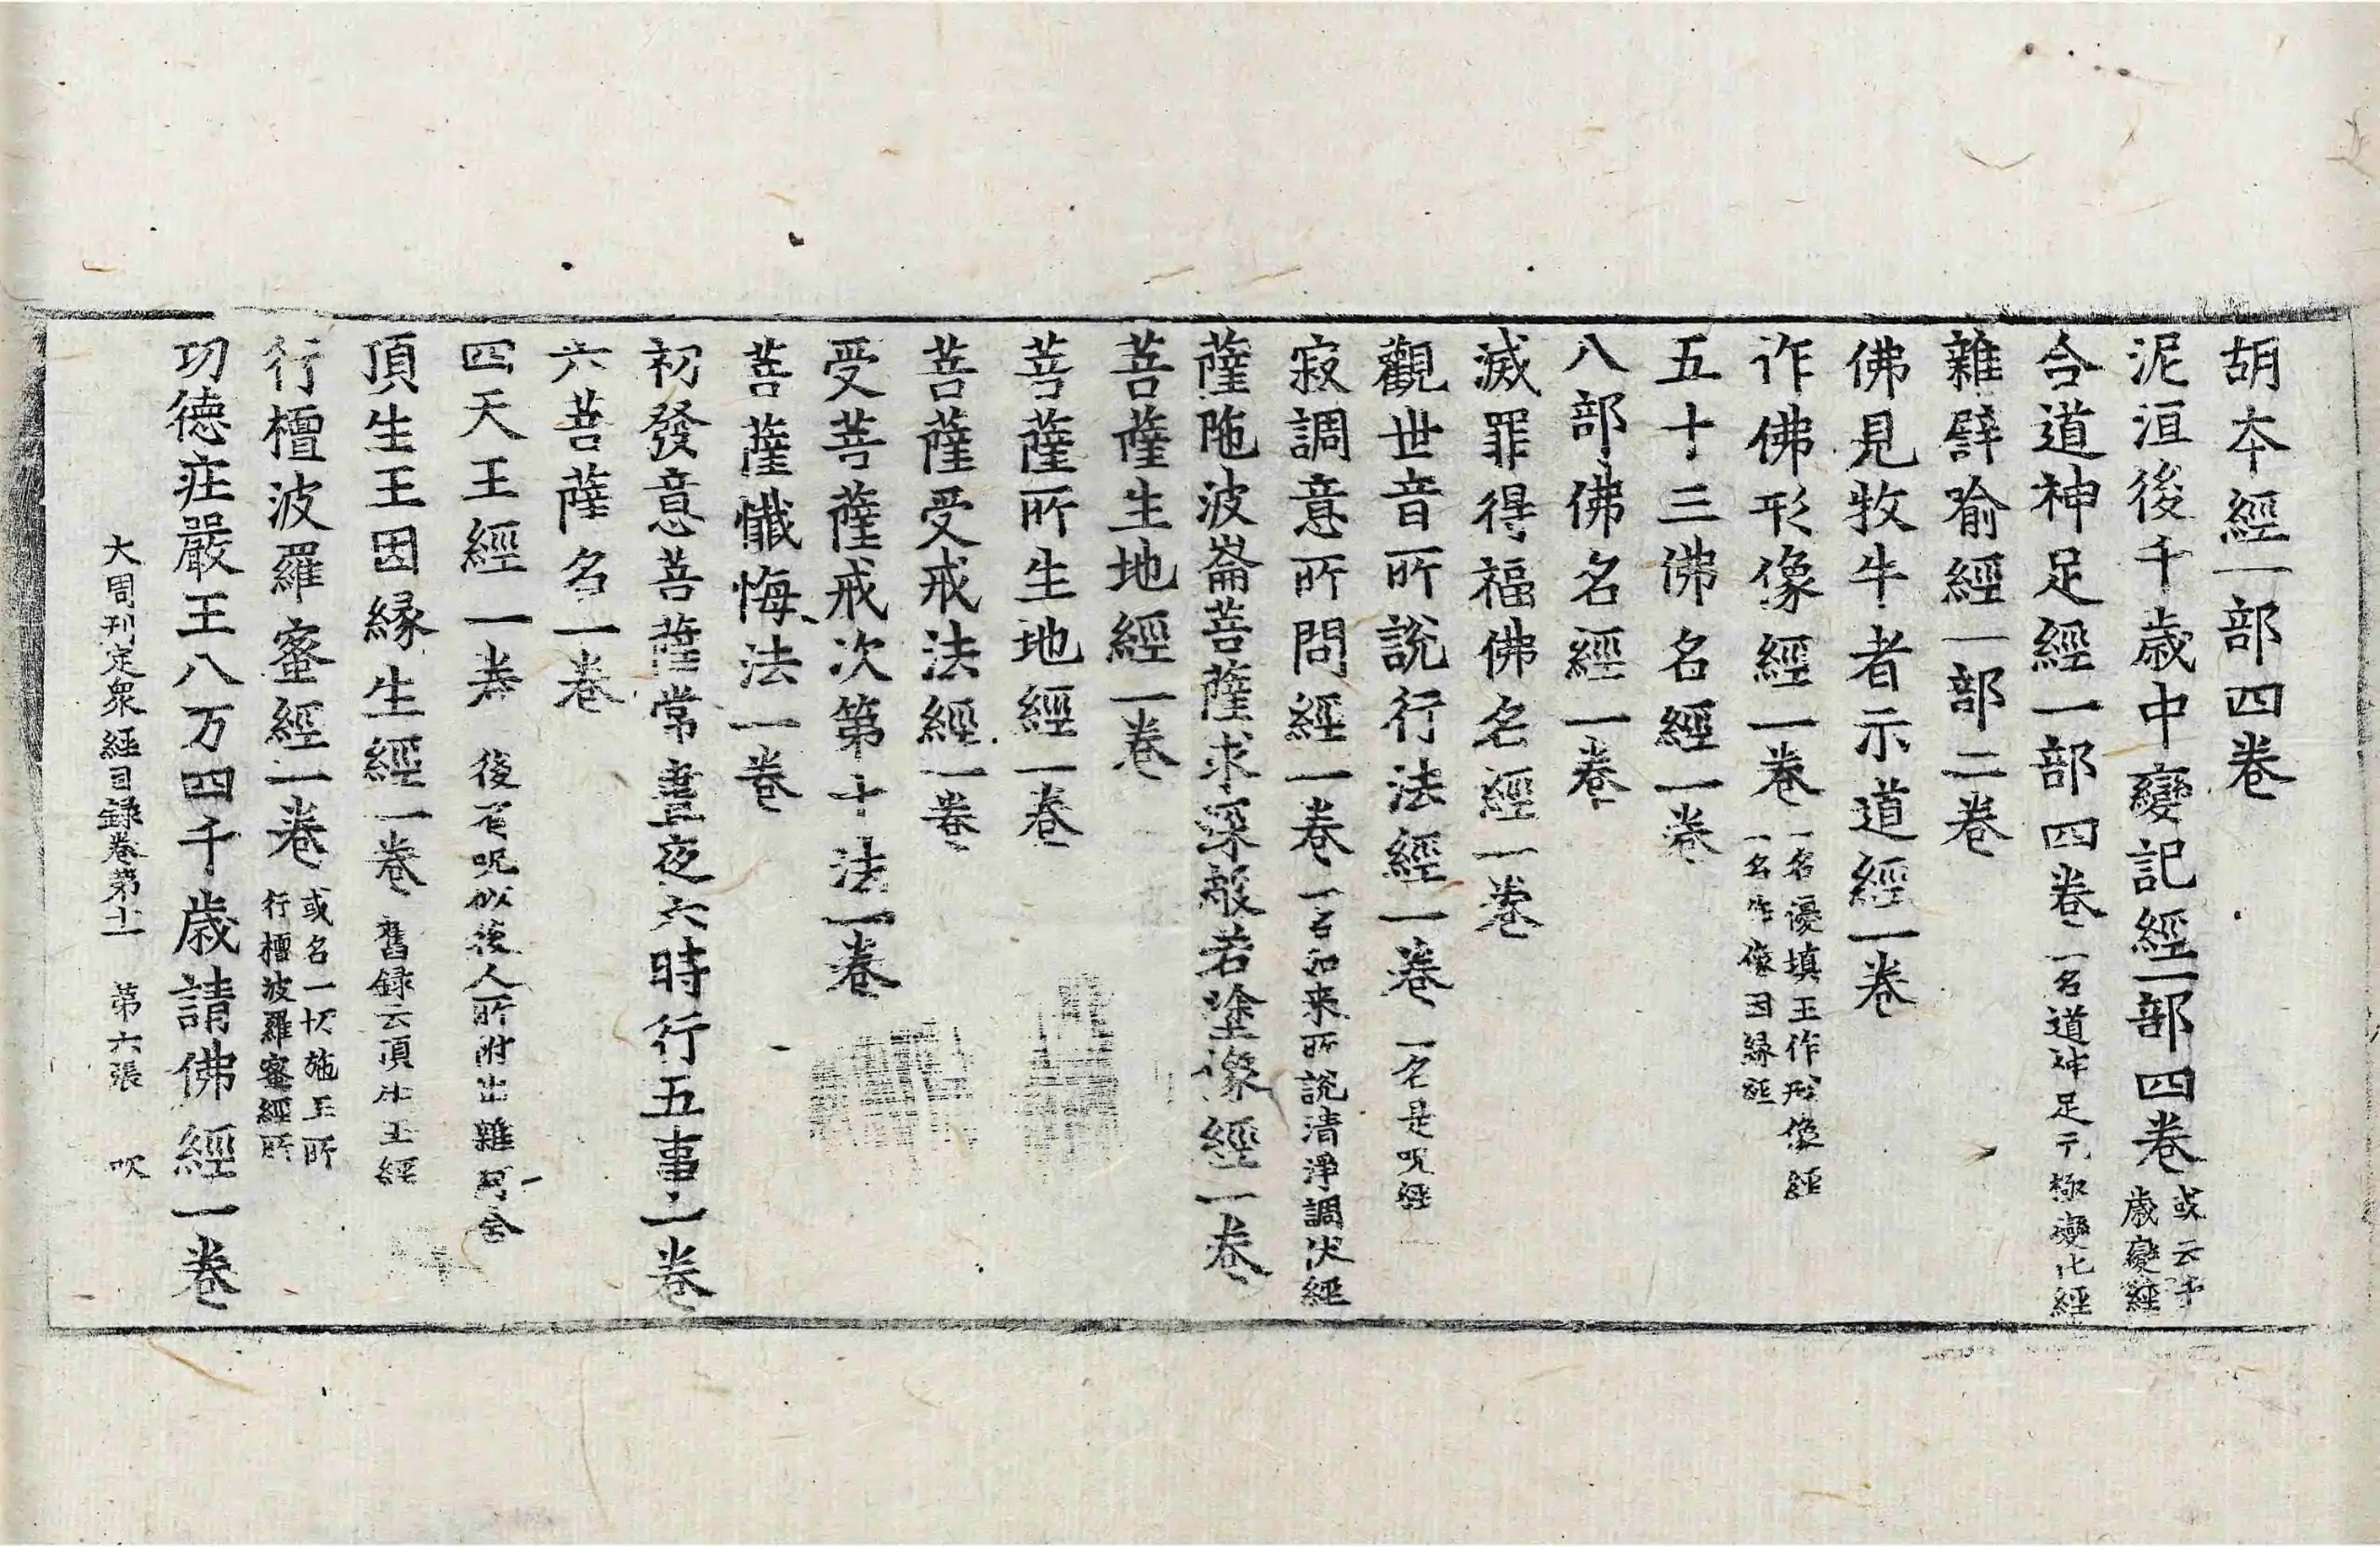 胡本經一部四卷
泥洹後千歲中變記經一部四卷 或云千歲變經
合道神足經一部四卷 一名道神足无極變化經
雜譬喻經一部二卷
佛見牧牛者示道經一卷
作佛形像經一卷 一名優填王作形像經 一名作像因緣經
五十三佛名經一卷
八部佛名經一卷
滅罪得福佛名經一卷
觀世音所說行法經一卷 一名是呪經
寂調意所問經一卷 一名如来所說清淨調伏經
薩陁波崙菩薩求深般若塗像經一卷
菩薩生地經一卷
菩薩所生地經一卷
菩薩受戒法經一卷
受菩薩戒次第十法一卷
菩薩懺悔法一卷
初發意菩薩常晝夜六時行五事一卷
六菩薩名一卷
四天王經一卷 後有呪似後人所附出雜阿含
頂生王因緣生經一卷 舊録云頂生王經
行檀波羅蜜經一卷 或名一切施王所行檀波羅蜜經所
功德莊嚴王八万四千歲請佛經一卷
大周刊定衆經目録卷第十一 第六張 吹